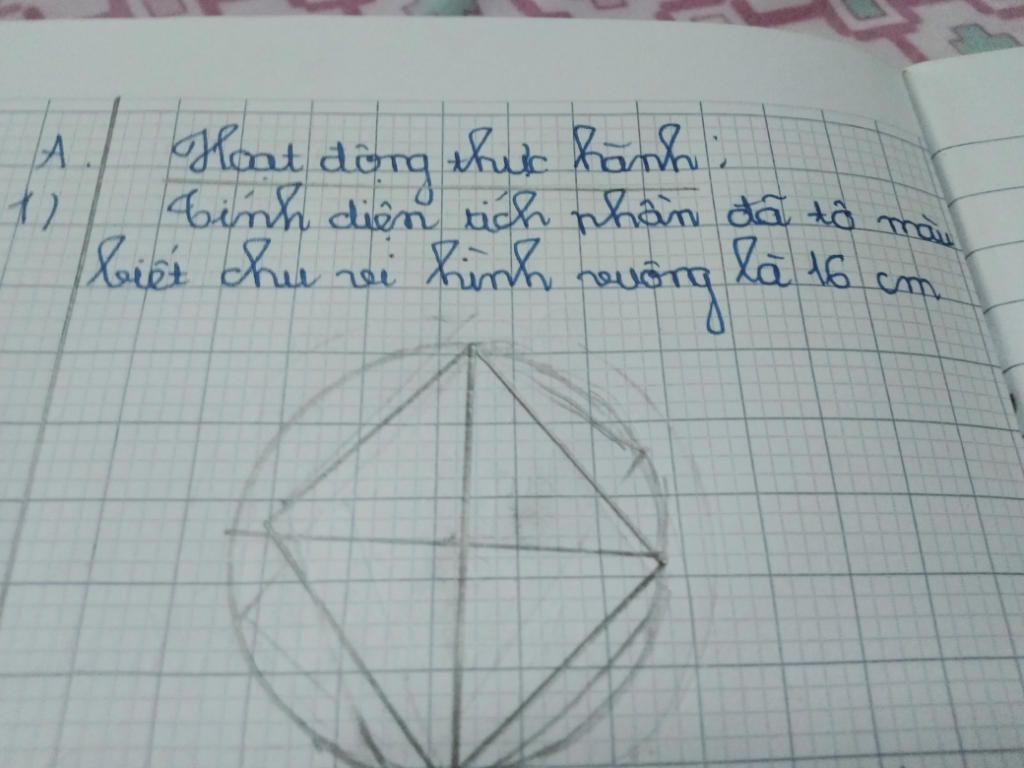 A. Hoạt động thực hành:
1) Tính diện tích phần đã tô màu
biết chu vi hình vuông là 16 cm